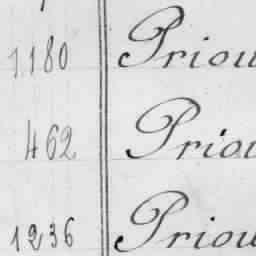 1180 Priou
462 Priou
1236 Priou